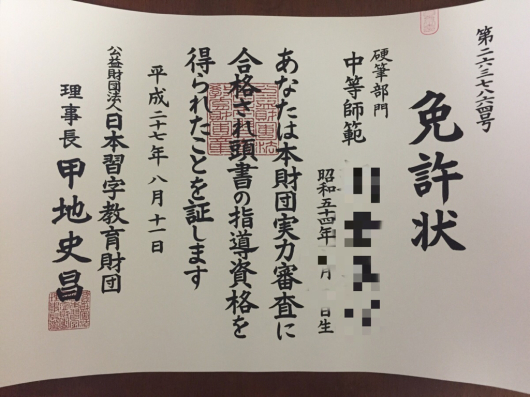 第二六三七八六四号
免許状
硬筆部門
中等師範
昭和五十四年 月 日生
あなたは本財団実力審査に
合格され頭書の指導資格を
得られたことを証します
平成二十七年八月十一日
公益財団法人日本習字教育財団
理事長 甲地史昌